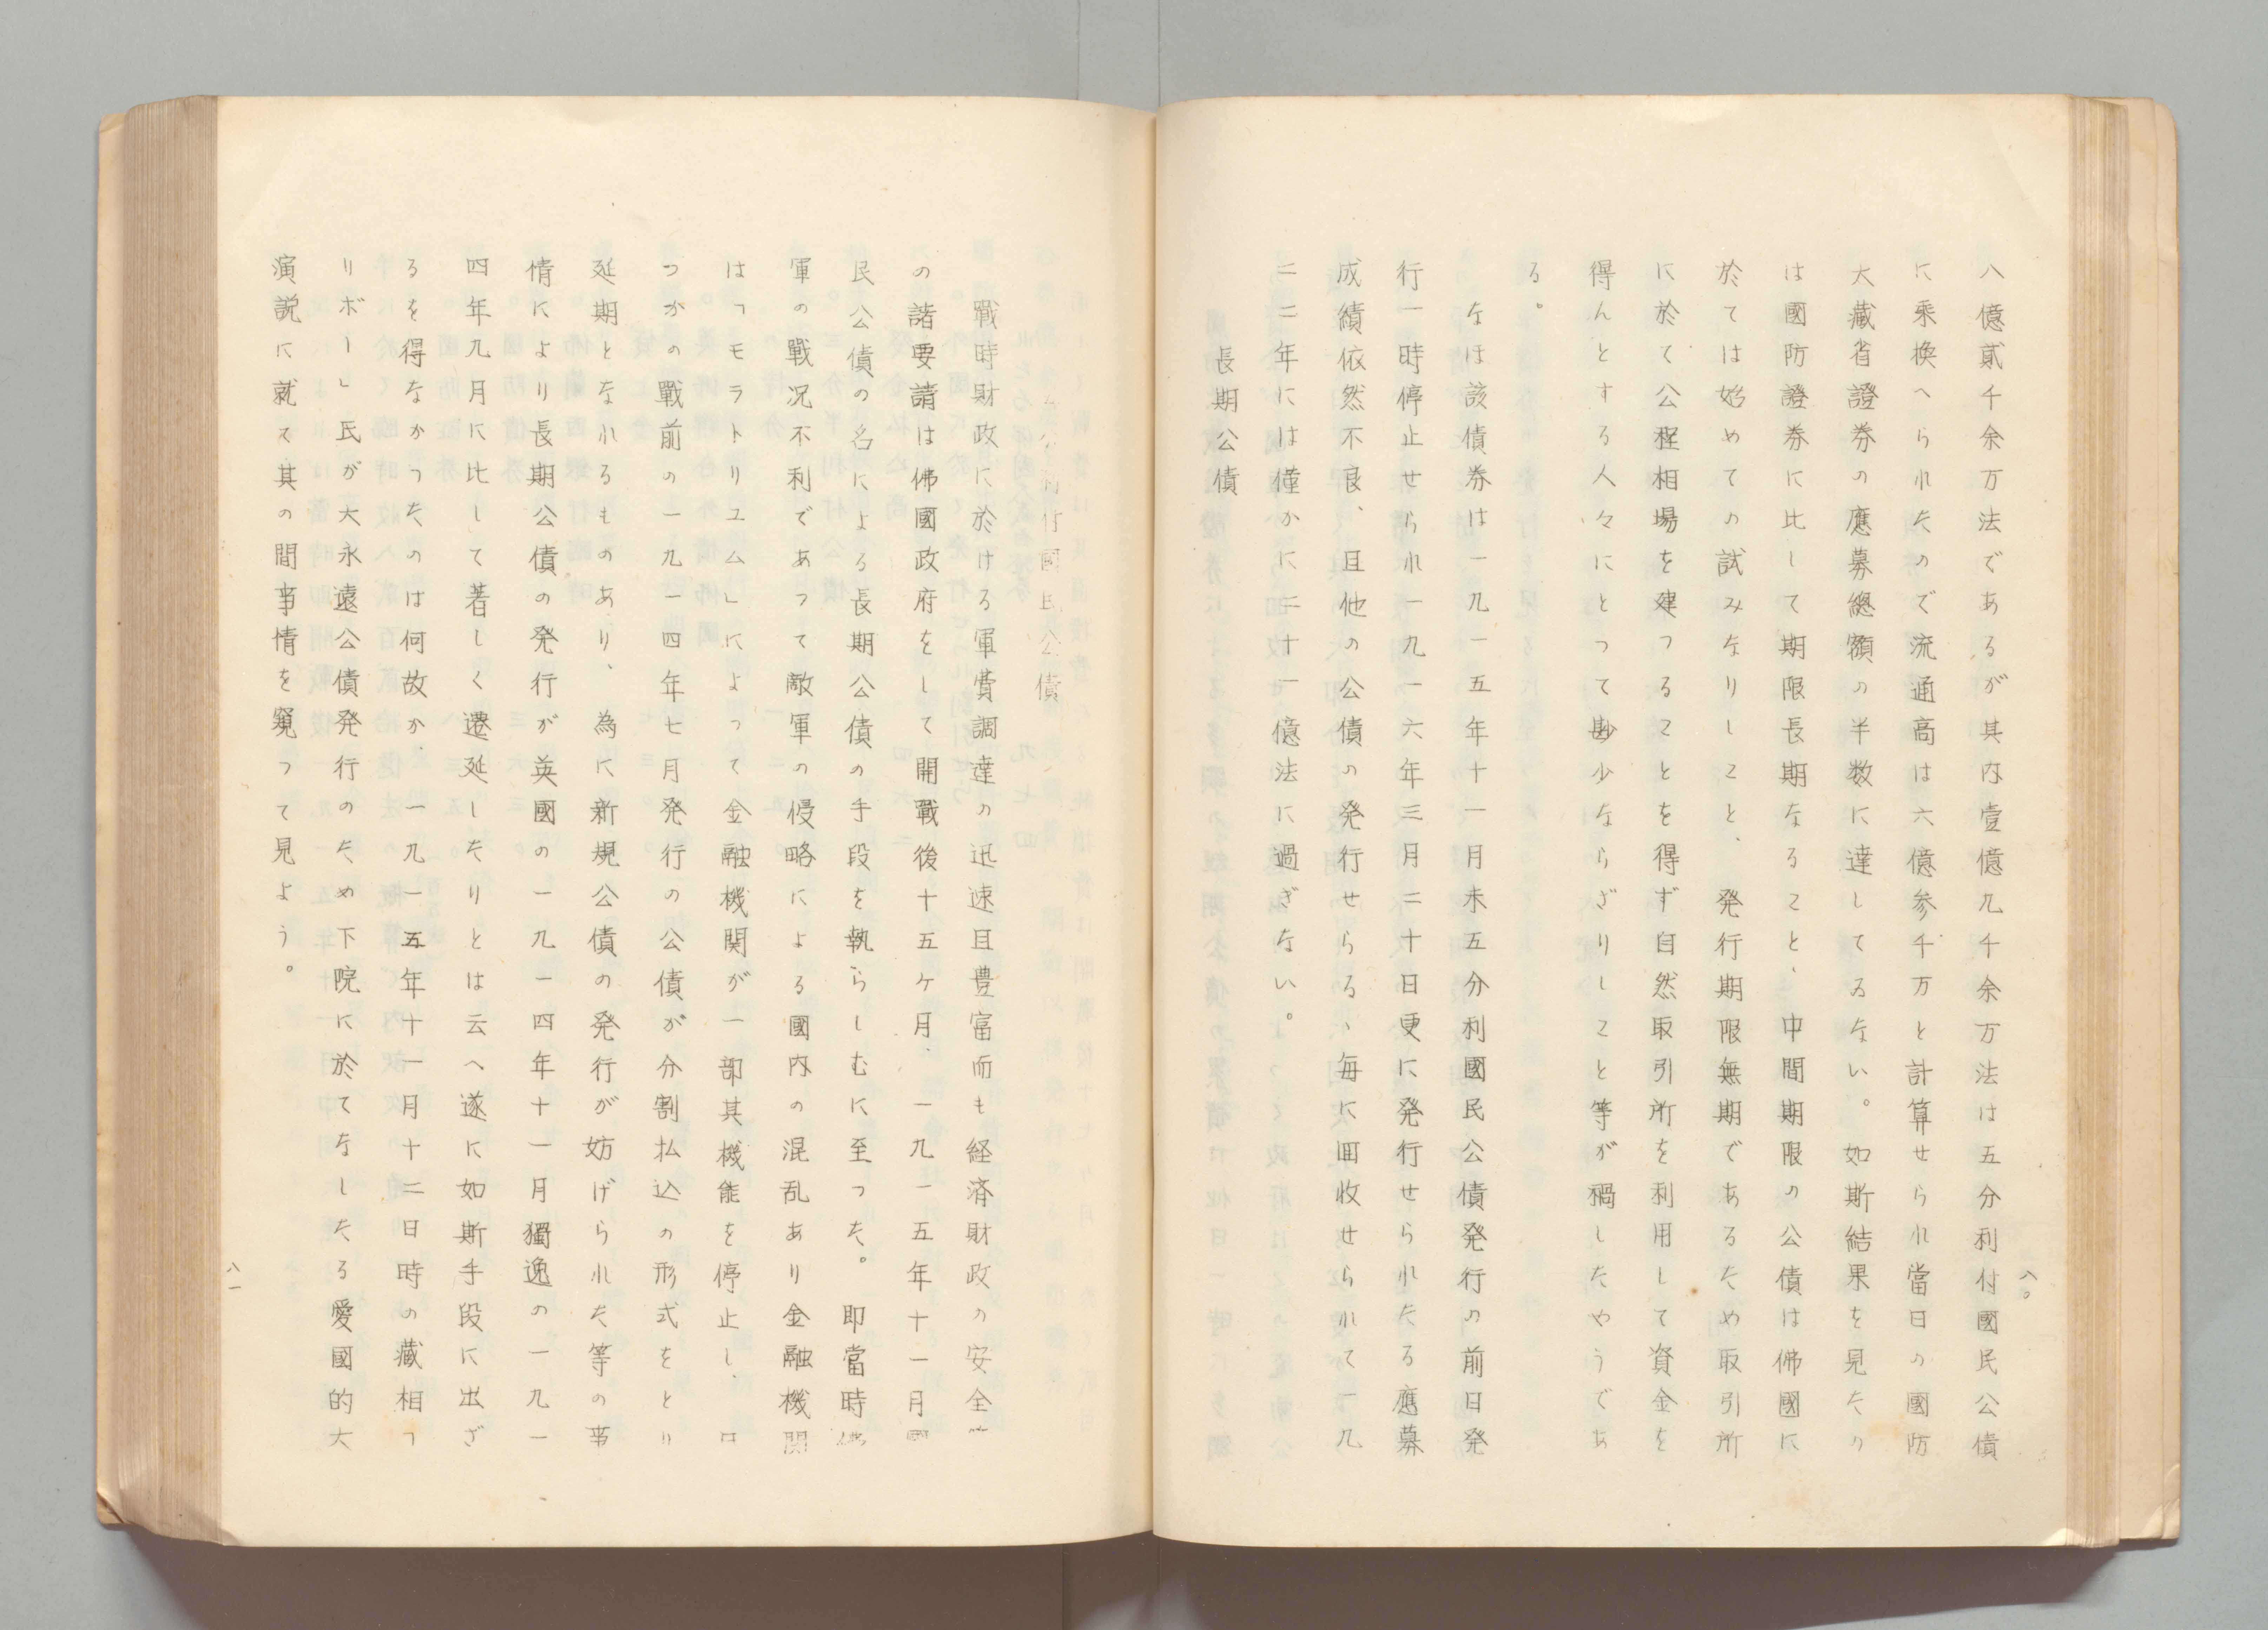 八〇
八億貳千余万法であるが其内壹億九千余万法は五分利付國民公債
に乘換へられたので流通高は六億参千万と計算せられ當日の國防
大藏省證券の應募總額の半数に達してゐない。如斯結果を見たの
は國防證券に比して期限長期なること、中間期限の公債は佛國に
於ては始めての試みなりしこと、発行期限無期であるため取引所
に於て公定相場を建つることを得ず自然取引所を利用して資金を
得んとする人々にとつて尠少ならざりしこと等が禍したやうであ
る。
なほ該債券は一九一五年十一月末五分利國民公債発行の前日発
行一時停止せられ一九一六年三月二十日更に発行せられたる應募
成績依然不良、且他の公債の発行せらるゝ毎に回收せられて一九
二二年には僅かに二十一億法に過ぎない。
長期公債
分利付國民公債
戰時財政に於ける軍費調達の迅速且豊富而も経済財政の安全等
の諸要請は佛國政府をして開戰後十五ヶ月、一九一五年十一月國
民公債の名による長期公債の手段を執らしむに至つた。即當時佛
軍の戰況不利であつて敵軍の侵略による國内の混乱あり金融機関
は「モラトリユム」によつて金融機関が一部其機能を停止し、且
つかの戰前の一九一四年七月発行の公債が分割払込の形式をとり
延期となれるものあり、為に新規公債の発行が妨げられた等の事
情により長期公債の発行が英國の一九一四年十一月獨逸の一九一
四年九月に比して著しく遷延したりとは云へ遂に如斯手段に出ざ
るを得なかつたのは何故か、一九一五年十一月十二日時の藏相「
リボー」氏が大永遠公債発行のため下院に於てなしたる愛國的大
演説に就て其の間事情を窺つて見よう。
八一